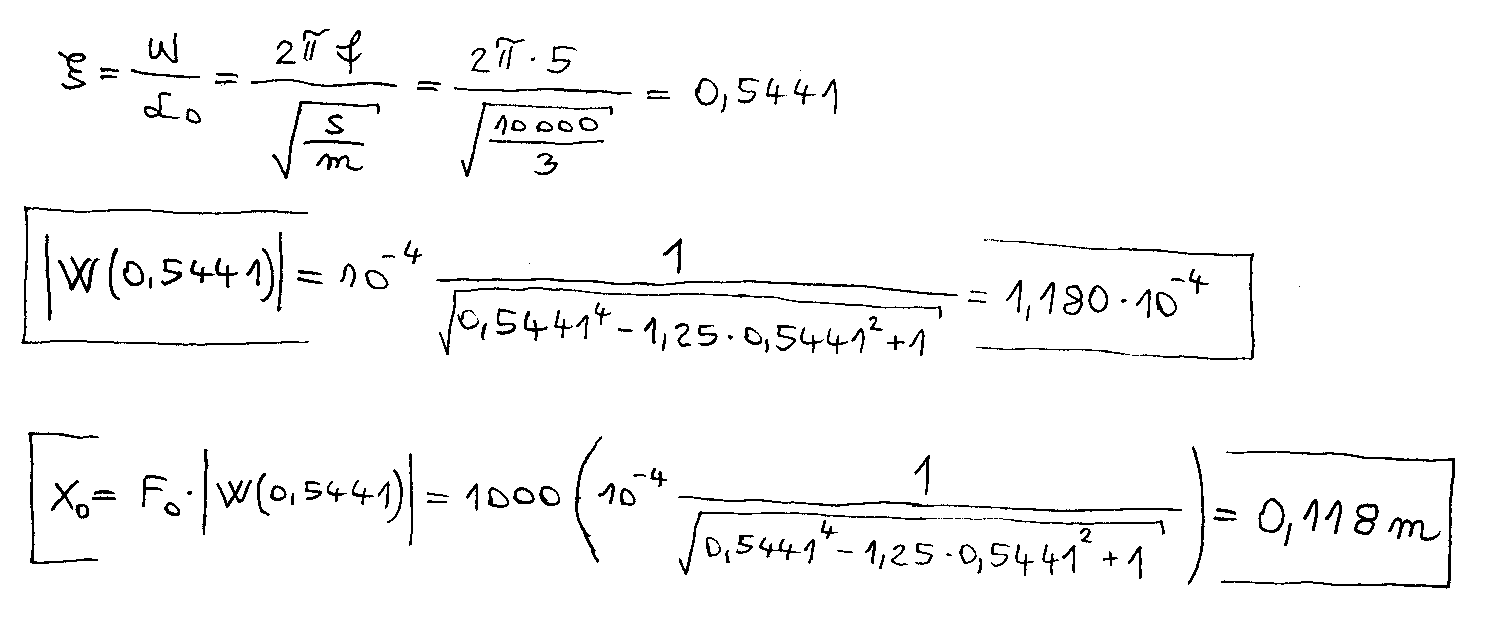 ξ = ω/α₀ = 2πf/√(s/m) = 2π·5/√(10000/3) = 0,5441
|W(0,5441)| = 10⁻⁴ 1/√(0,5441⁴ - 1,25·0,5441² + 1) = 1,180·10⁻⁴
X₀ = F₀·|W(0,5441)| = 1000 (10⁻⁴ 1/√(0,5441⁴ - 1,25·0,5441² + 1)) = 0,118 m